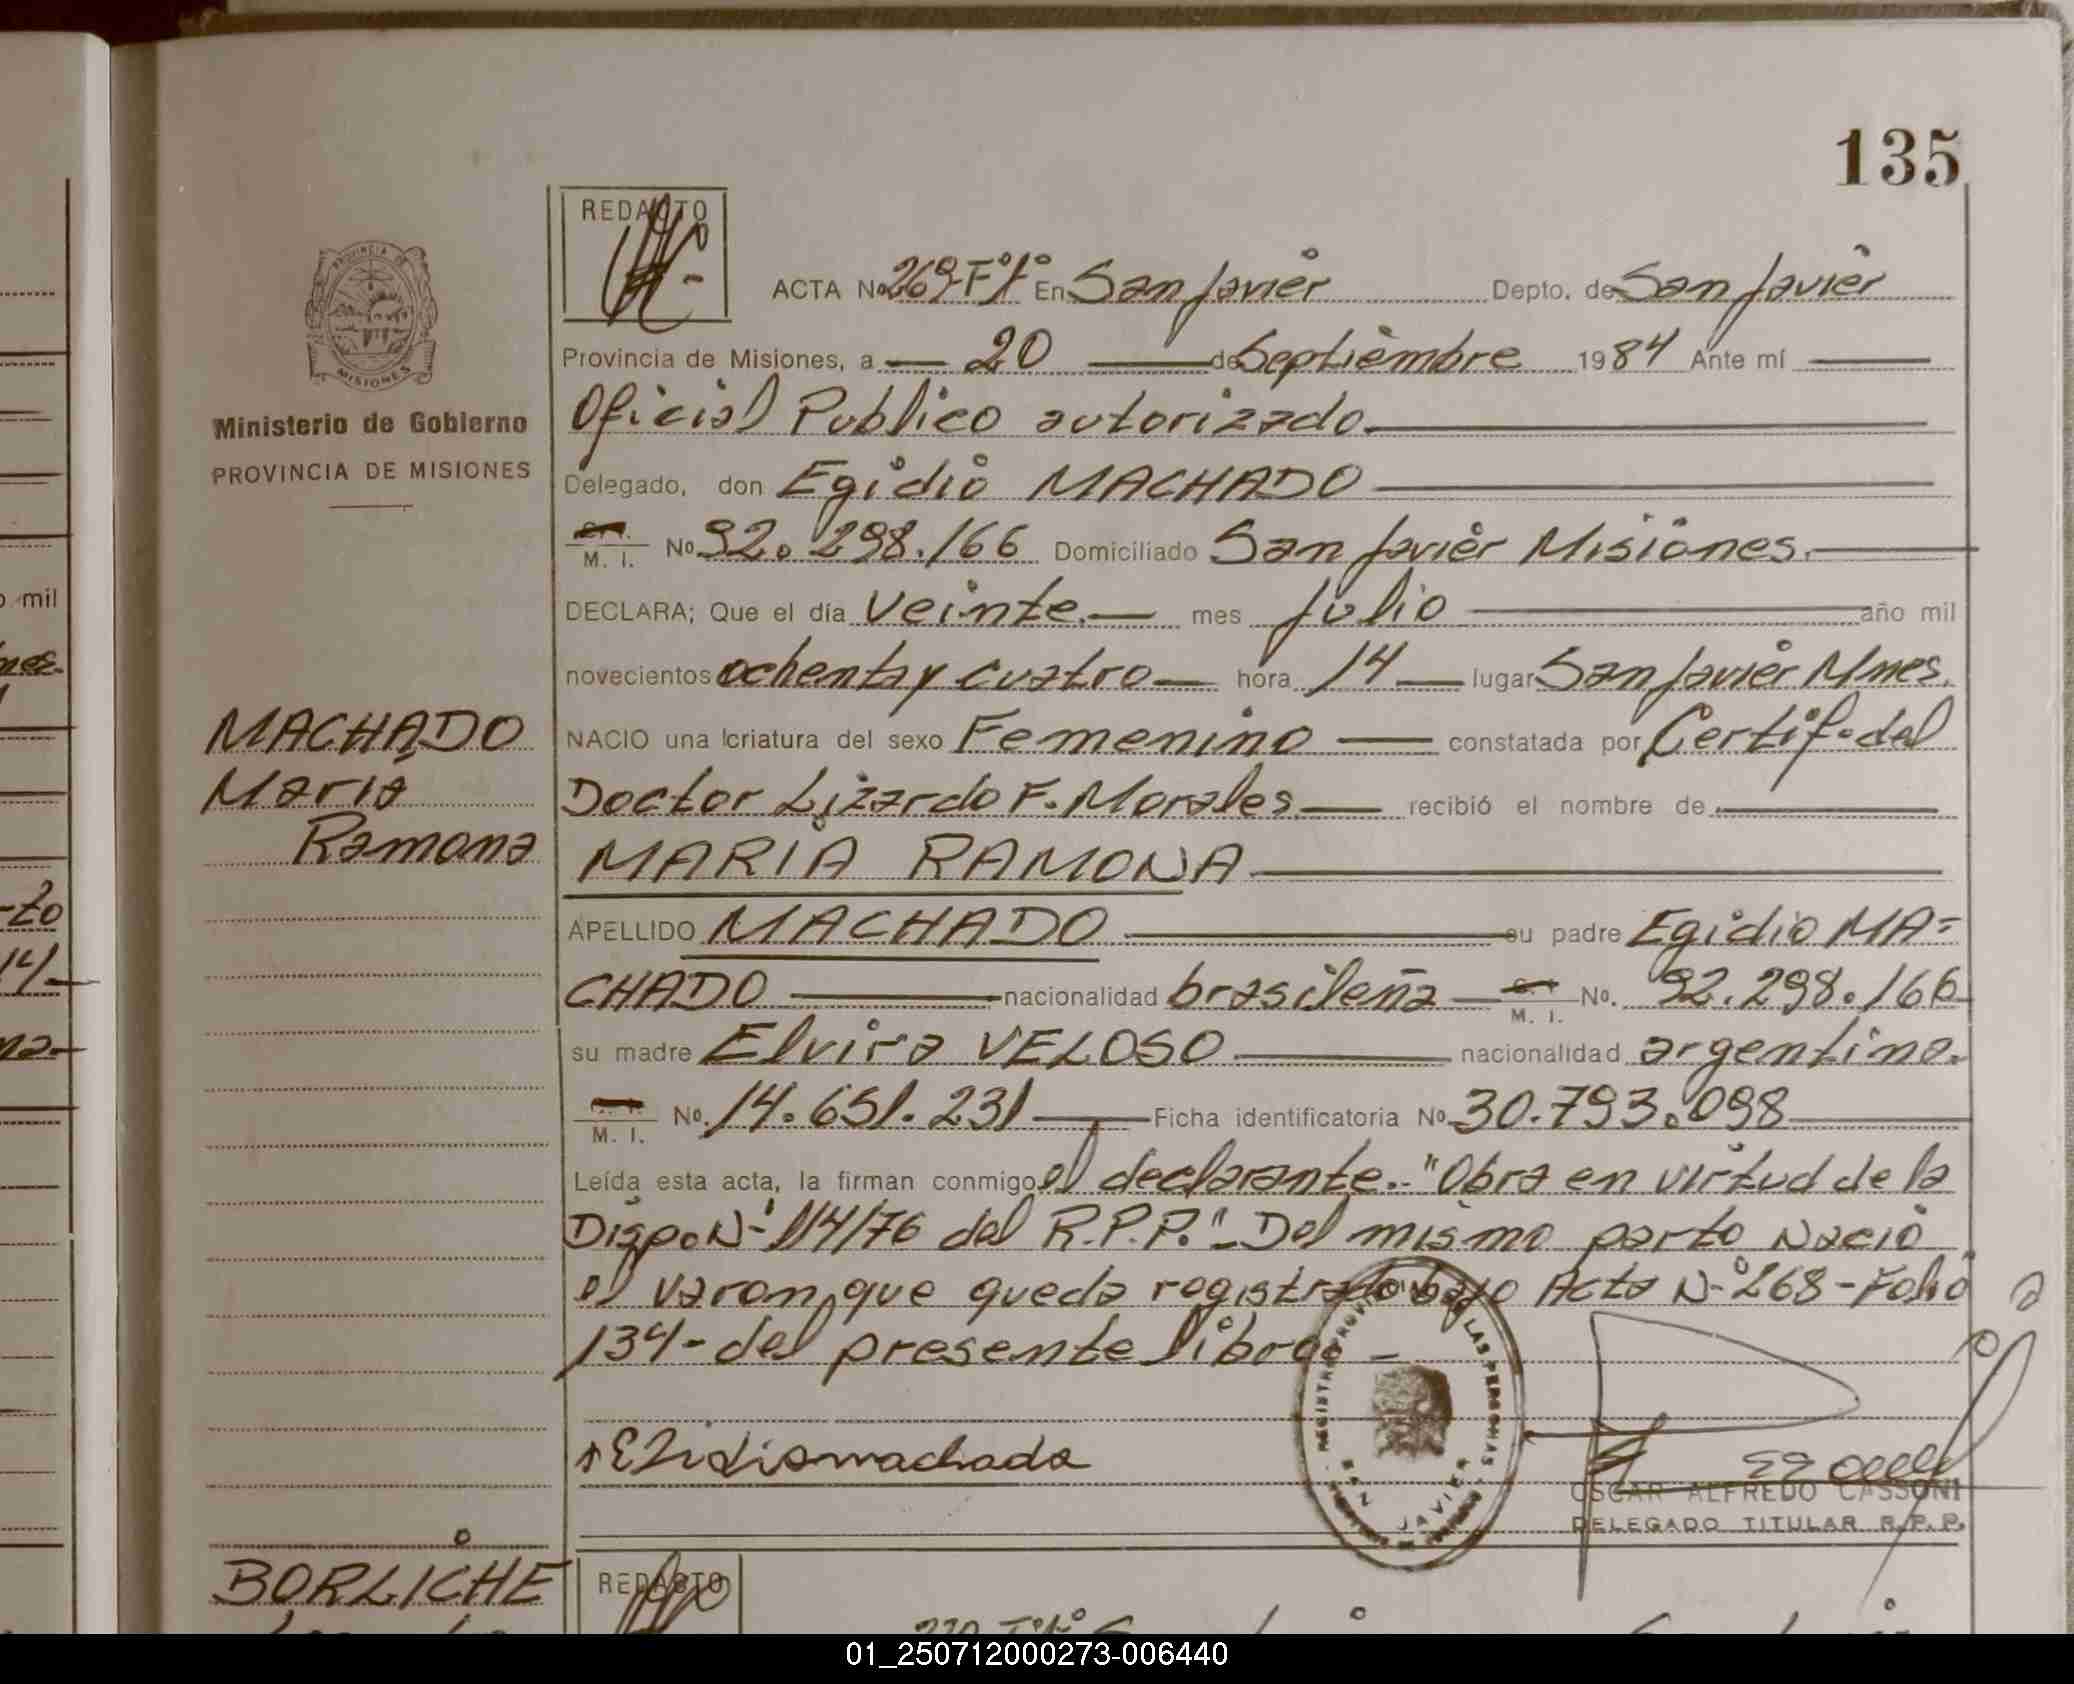 135
REDACTO
ACTA No 269-Fº1º En San Javier Depto. de San Javier
Provincia de Misiones, a 20 de Septiembre 1984 Ante mí
Oficial Publico autorizado.
Delegado, don Egidio MACHADO
M. I. No 92.298.166 Domiciliado San Javier Misiones.
DECLARA; Que el día Veinte.- mes Julio año mil
novecientos ochenta y cuatro hora 14 lugar San Javier Mnes.
NACIO una criatura del sexo Femenino constatada por Certif. del
Doctor Lizardo F. Morales recibió el nombre de
MARIA RAMONA
APELLIDO MACHADO su padre Egidio MA-
CHADO nacionalidad brasileña M. I. No. 92.298.166
su madre Elvira VELOSO nacionalidad argentina.
M. I. No. 14.651.231 Ficha identificatoria No 30.793.098
Leída esta acta, la firman conmigo el declarante.- "Obra en virtud de la
Dispo. Nº 114/76 del R.P.P."- Del mismo parto Nació
el varon, que queda registrado bajo Acta Nº 268 - Folio
134- del presente libro.-
Elidio machado
OSCAR ALFREDO CASSONI
DELEGADO TITULAR R.P.P.
PROVINCIA DE
MISIONES
Ministerio de Gobierno
PROVINCIA DE MISIONES
MACHADO
Maria
Ramona
BORLICHE
REDACTO
LAS PERSONAS
SAN JAVIER
o mil
-to
14-
na-
01_250712000273-006440